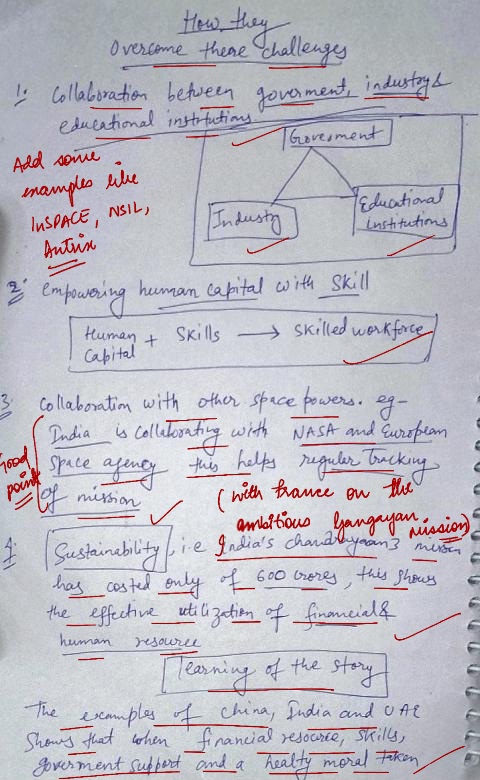 How they
Overcome these challenges
1. Collaboration between goverment, industry &
educational institutions.
Goverment
Industry
Educational
Institutions
Add some
examples like
InSPACE, NSIL,
Antrix
2. Empowering human capital with Skill
Human + Skills → Skilled workforce
Capital
3. Collaboration with other space powers. eg-
India is collaborating with NASA and European
Space agency this helps regular tracking
of mission
Good
point
(with france on the
ambitious Gangayan mission)
4. Sustainability, i.e India's chandrayaan3 mission
has costed only of 600 crores, this shows
the effective utilization of financial &
human resource
Learning of the story
The examples of China, India and UAE
Shows that when financial resource, skills,
goverment support and a healty moral taken